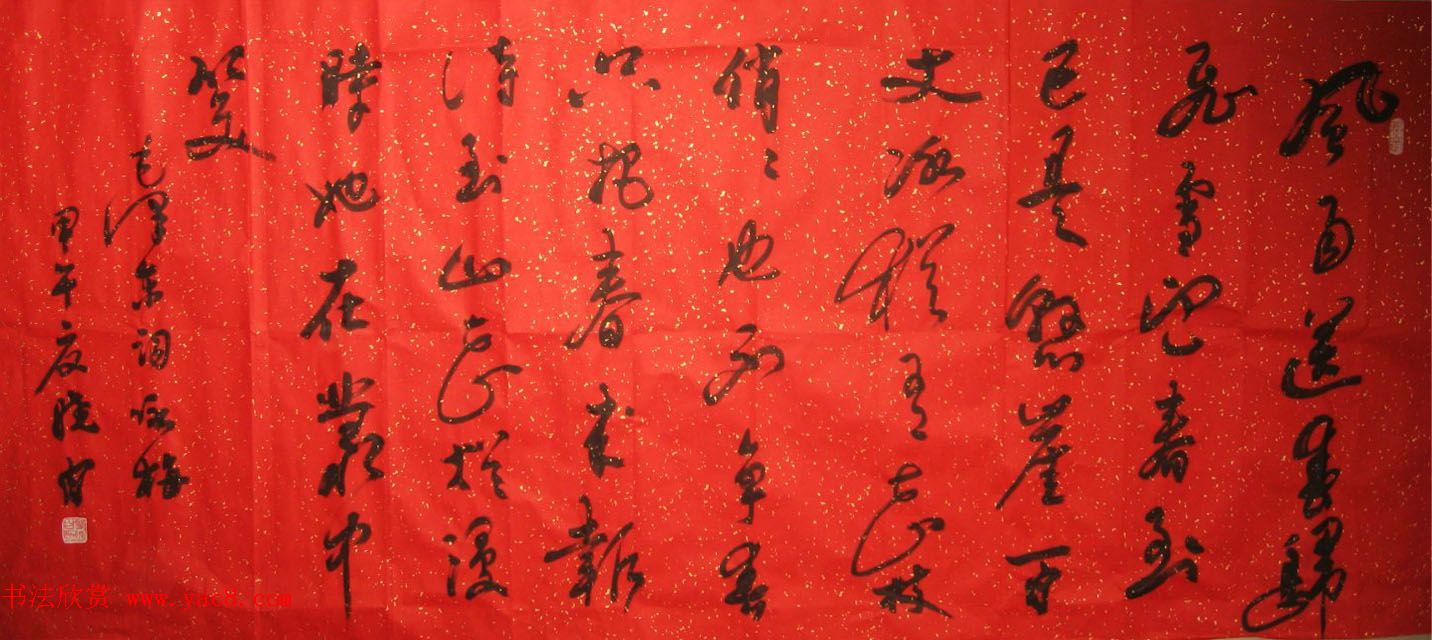 風雨送春歸
飛雪迎春到
已是懸崖百
丈冰猶有花枝
俏〻也不争春
只把春来報
待到山花烂漫
時她在叢中
笑
毛澤东词咏梅
甲午夏
书法欣赏 www.yac8.com